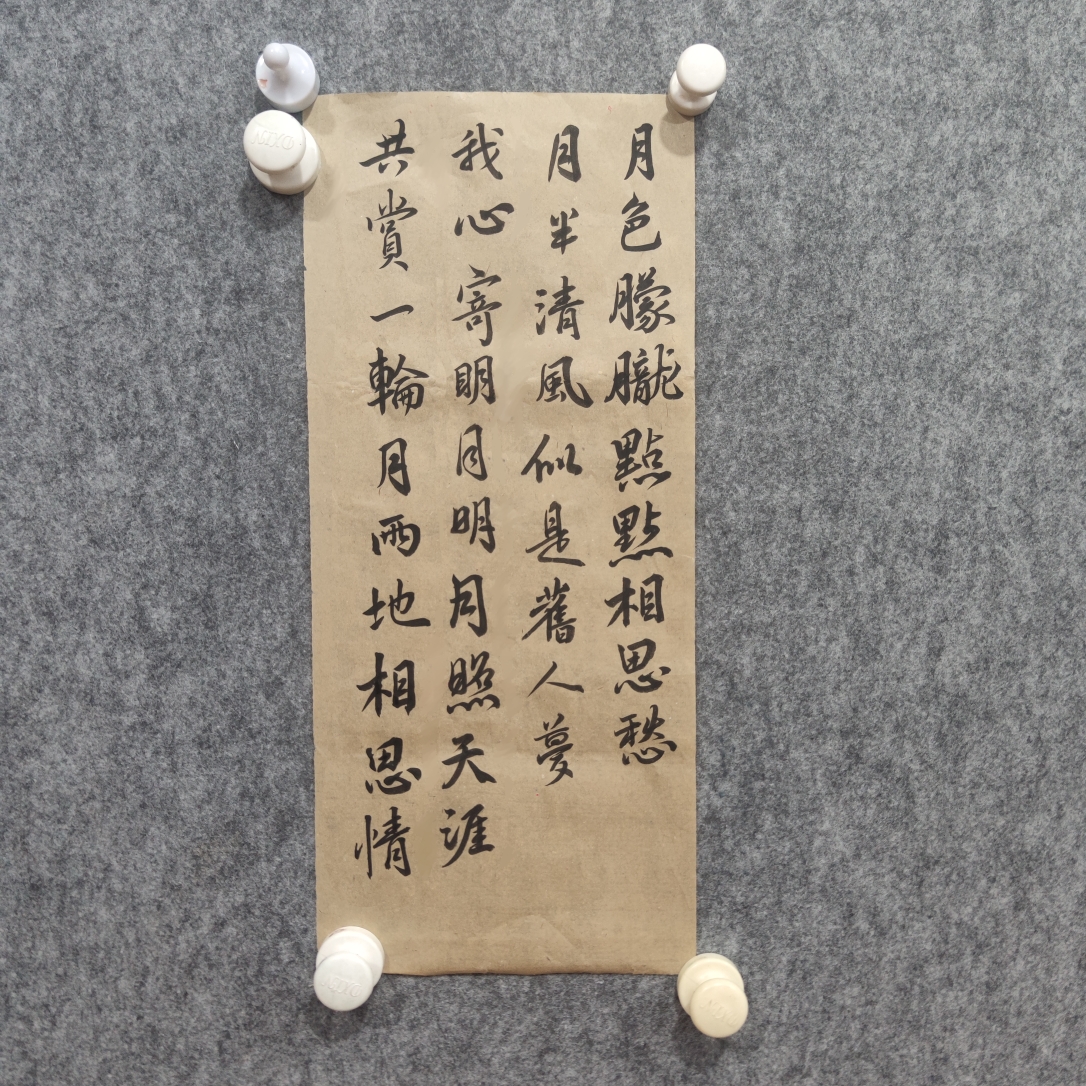 月色朦朧點點相思愁
月半清風似是舊人夢
我心寄明月明月照天涯
共賞一輪月兩地相思情